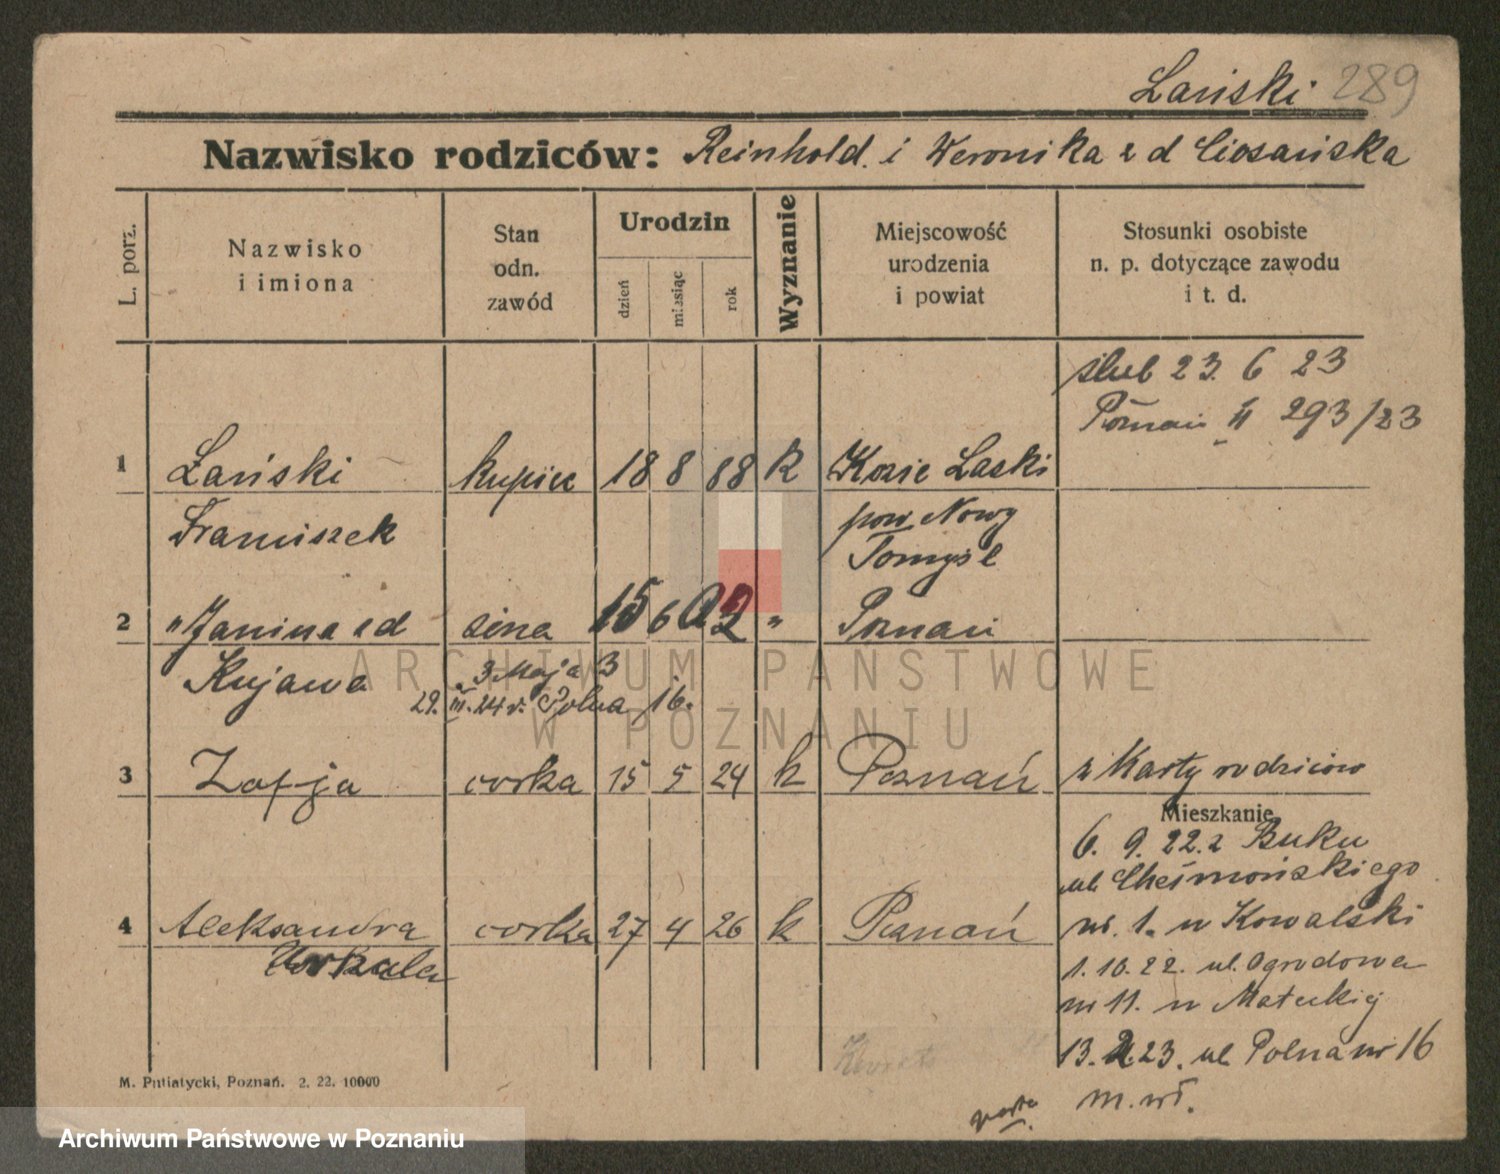 Łański 289
Nazwisko rodziców: Reinhold i Weronika z d Ciosańska
L. porz.
Nazwisko
i imiona
Stan
odn.
zawód
Urodzin
dzień
miesiąc
rok
Wyznanie
Miejscowość
urodzenia
i powiat
Stosunki osobiste
n. p. dotyczące zawodu
i t. d.
ślub 23. 6 23
Poznań II 293/23
1 Łański kupiec 18 8 88 k Kozie Laski
Franciszek pow. Nowy
Tomyśl
2 " Janina z d żona 15 6 02 " Poznań
Kujawa 3 Maja 3
29. III. 24 r. Polna 16.
3 Zofja córka 15 5 24 k Poznań z Karty rodziców
Mieszkanie
6. 9. 22. z Buku
ul. Chełmońskiego
4 Aleksandra córka 27 4 26 k Poznań nr. 1. u Kowalski
Urszula
1. 10. 22. ul. Ogrodowa
nr 11. u Matuckiej
13. 23. ul Polna nr 16
m. wł.
M. Putiatycki, Poznań. 2. 22. 10000
ARCHIWUM PAŃSTWOWE
W POZNANIU
Archiwum Państwowe w Poznaniu